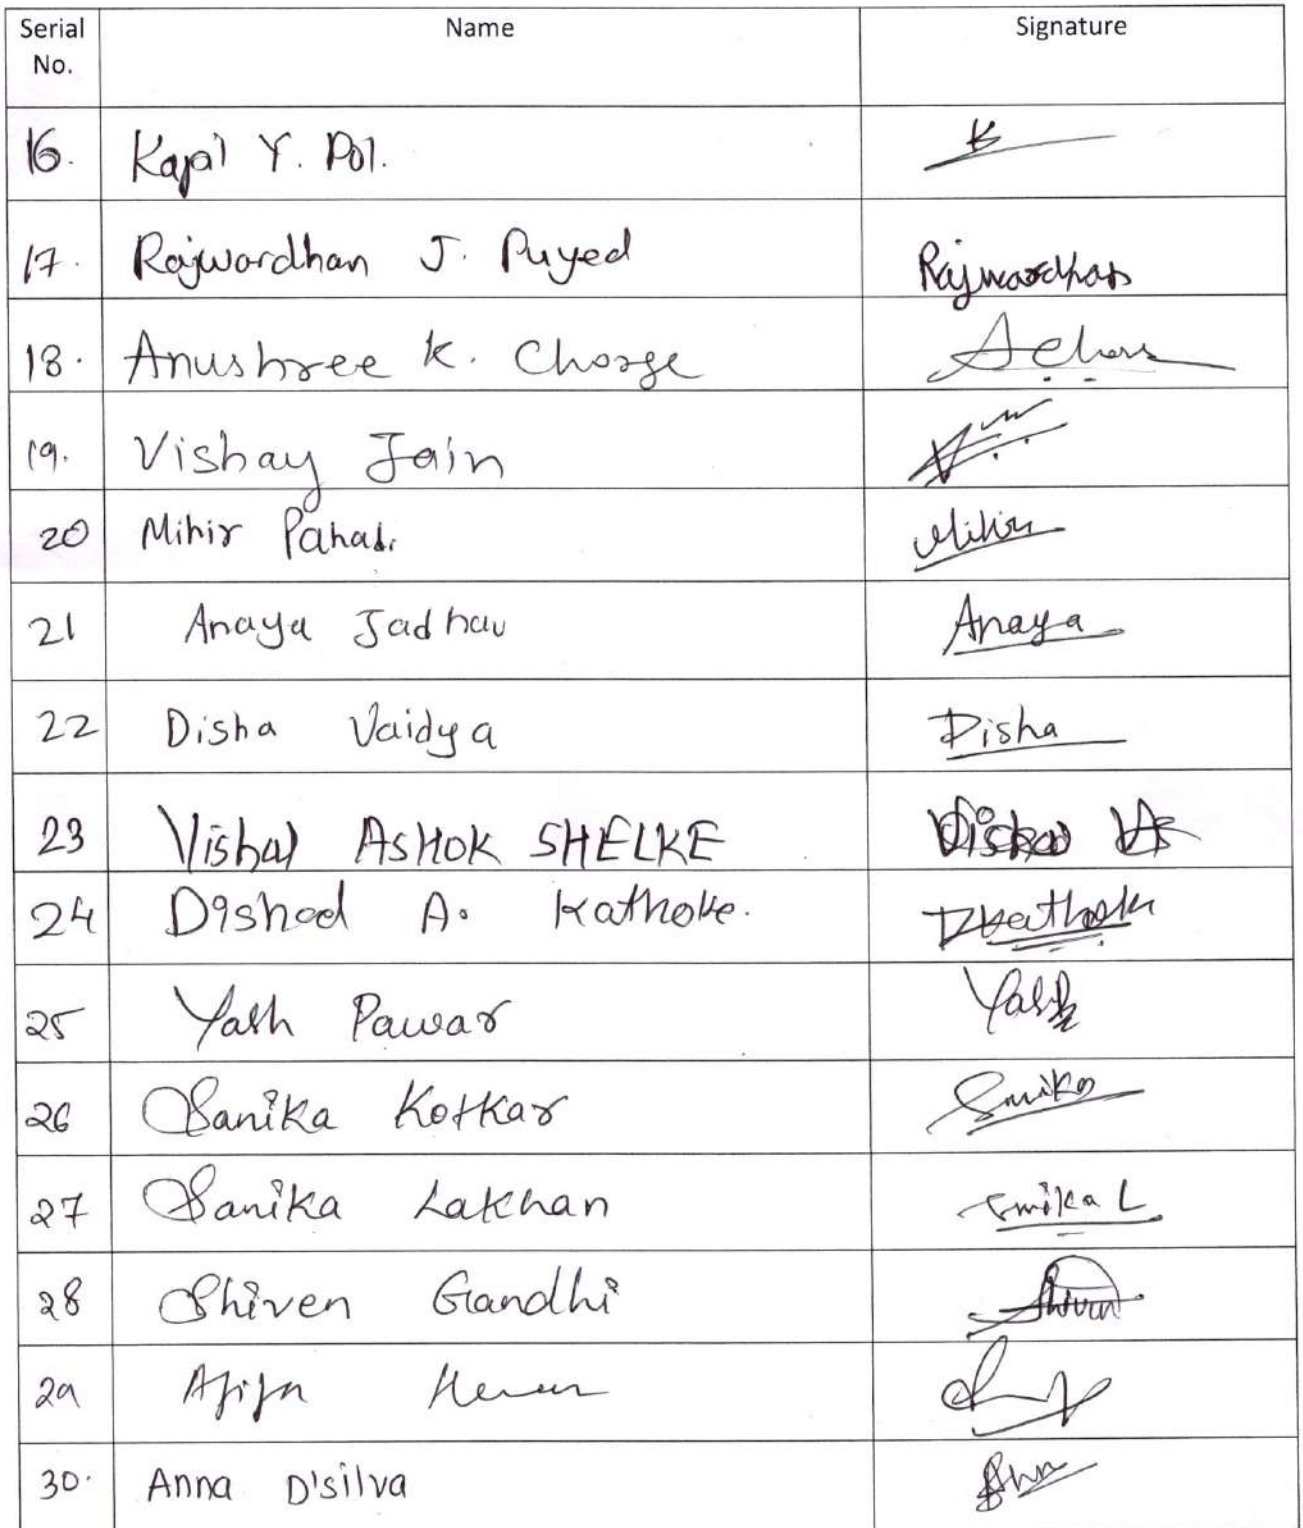 Serial No. Name Signature
16. Kapil Y. Pol. K
17. Rajwardhan J. Puyed Rajwardhan
18. Anushree K. Chorge
19. Vishay Jain
20 Mihir Pahadi Mihir
21 Anaya Jadhav Anaya
22 Disha Vaidya Disha
23 Vishal ASHOK SHELKE Vishal
24 A. Kathoke. DKathoke
25 Yash Pawar Yash
26 Sanika Kotkar Sanika
27 Sanika Lakhan Sanika L
28 Shiven Gandhi Shiven
29
30. Anna D'silva Ann